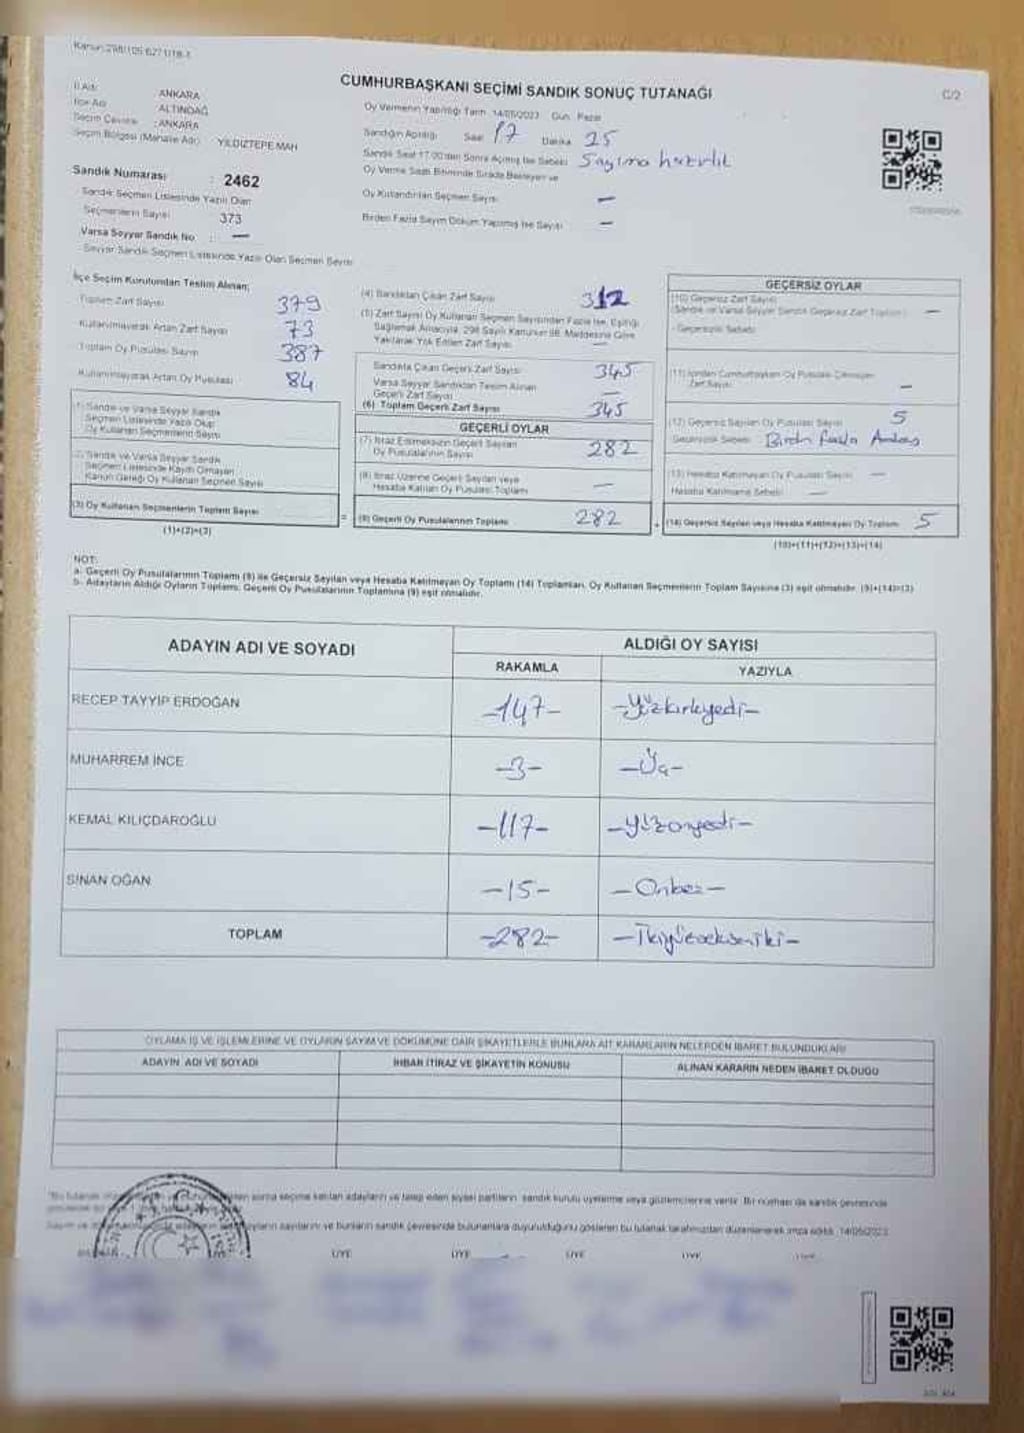 Kanun:298/105 6271/18-1
CUMHURBAŞKANI SEÇİMİ SANDIK SONUÇ TUTANAĞI
C/2
İl Adı : ANKARA
İlçe Adı : ALTINDAĞ
Seçim Çevresi : ANKARA
Seçim Bölgesi (Mahalle Adı) YILDIZTEPE MAH
Oy Vermenin Yapıldığı Tarih 14/05/2023 Gün Pazar
Sandığın Açıldığı Saat 17 Dakika 25
Sandık Saat 17:00'dan Sonra Açılmış İse Sebebi Sayıma hazırlık
Oy Verme Saati Bitiminde Sırada Bekleyen ve
Oy Kullandırılan Seçmen Sayısı —
Birden Fazla Sayım Döküm Yapılmış İse Sayısı —
Sandık Numarası : 2462
Sandık Seçmen Listesinde Yazılı Olan
Seçmenlerin Sayısı 373
Varsa Seyyar Sandık No : —
Seyyar Sandık Seçmen Listesinde Yazılı Olan Seçmen Sayısı
İlçe Seçim Kurulundan Teslim Alınan;
Toplam Zarf Sayısı 379
Kullanılmayarak Artan Zarf Sayısı 73
Toplam Oy Pusulası Sayısı 387
Kullanılmayarak Artan Oy Pusulası 84
(1) Sandık ve Varsa Seyyar Sandık
Seçmen Listesinde Yazılı Olup
Oy Kullanan Seçmenlerin Sayısı
(2) Sandık ve Varsa Seyyar Sandık
Seçmen Listesinde Kaydı Olmayan
Kanun Gereği Oy Kullanan Seçmen Sayısı
(3) Oy Kullanan Seçmenlerin Toplam Sayısı
(1)+(2)=(3)
(4) Sandıktan Çıkan Zarf Sayısı 312
(5) Zarf Sayısı Oy Kullanan Seçmen Sayısından Fazla İse, Eşitliği
Sağlamak Amacıyla, 298 Sayılı Kanunun 98. Maddesine Göre
Yakılarak Yok Edilen Zarf Sayısı —
Sandıkta Çıkan Geçerli Zarf Sayısı 345
Varsa Seyyar Sandıktan Teslim Alınan
Geçerli Zarf Sayısı —
(6) Toplam Geçerli Zarf Sayısı 345
GEÇERLİ OYLAR
(7) İtiraz Edilmeksizin Geçerli Sayılan
Oy Pusulalarının Sayısı 282
(8) İtiraz Üzerine Geçerli Sayılan veya
Hesaba Katılan Oy Pusulası Toplamı —
(9) Geçerli Oy Pusulalarının Toplamı 282
GEÇERSİZ OYLAR
(10) Geçersiz Zarf Sayısı
(Sandık ve Varsa Seyyar Sandık Geçersiz Zarf Toplamı) —
Geçersizlik Sebebi
(11) İçinden Cumhurbaşkanı Oy Pusulası Çıkmayan
Zarf Sayısı —
(12) Geçersiz Sayılan Oy Pusulası Sayısı 5
Geçersizlik Sebebi Birden fazla
(13) Hesaba Katılmayan Oy Pusulası Sayısı —
Hesaba Katılmama Sebebi —
(14) Geçersiz Sayılan veya Hesaba Katılmayan Oy Toplamı 5
(10)+(11)+(12)+(13)=(14)
NOT:
a- Geçerli Oy Pusulalarının Toplamı (9) ile Geçersiz Sayılan veya Hesaba Katılmayan Oy Toplamı (14) Toplamları, Oy Kullanan Seçmenlerin Toplam Sayısına (3) eşit olmalıdır. (9)+(14)=(3)
b- Adayların Aldığı Oyların Toplamı, Geçerli Oy Pusulalarının Toplamına (9) eşit olmalıdır.
ADAYIN ADI VE SOYADI
ALDIĞI OY SAYISI
RAKAMLA YAZIYLA
RECEP TAYYİP ERDOĞAN -147- -Yüzkırkyedi-
MUHARREM İNCE -3- -Üç-
KEMAL KILIÇDAROĞLU -117- -Yüzonyedi-
SİNAN OĞAN -15- -Onbeş-
TOPLAM -282- -İkiyüzsekseniki-
OYLAMA İŞ VE İŞLEMLERİNE VE OYLARIN SAYIM VE DÖKÜMÜNE DAİR ŞİKAYETLERLE BUNLARA AİT KARARLARIN NELERDEN İBARET BULUNDUKLARI
ADAYIN ADI VE SOYADI İHBAR İTİRAZ VE ŞİKAYETİN KONUSU ALINAN KARARIN NEDEN İBARET OLDUĞU
sonra seçime katılan adayların ve talep eden siyasi partilerin sandık kurulu üyelerine veya gözlemcilerine verilir. Bir nüshası da sandık çevresinde
oyların sayılarını ve bunların sandık çevresinde bulunanlara duyurulduğunu gösteren bu tutanak tarafımızdan düzenlenerek imza edildi. 14/05/2023
ÜYE ÜYE ÜYE ÜYE